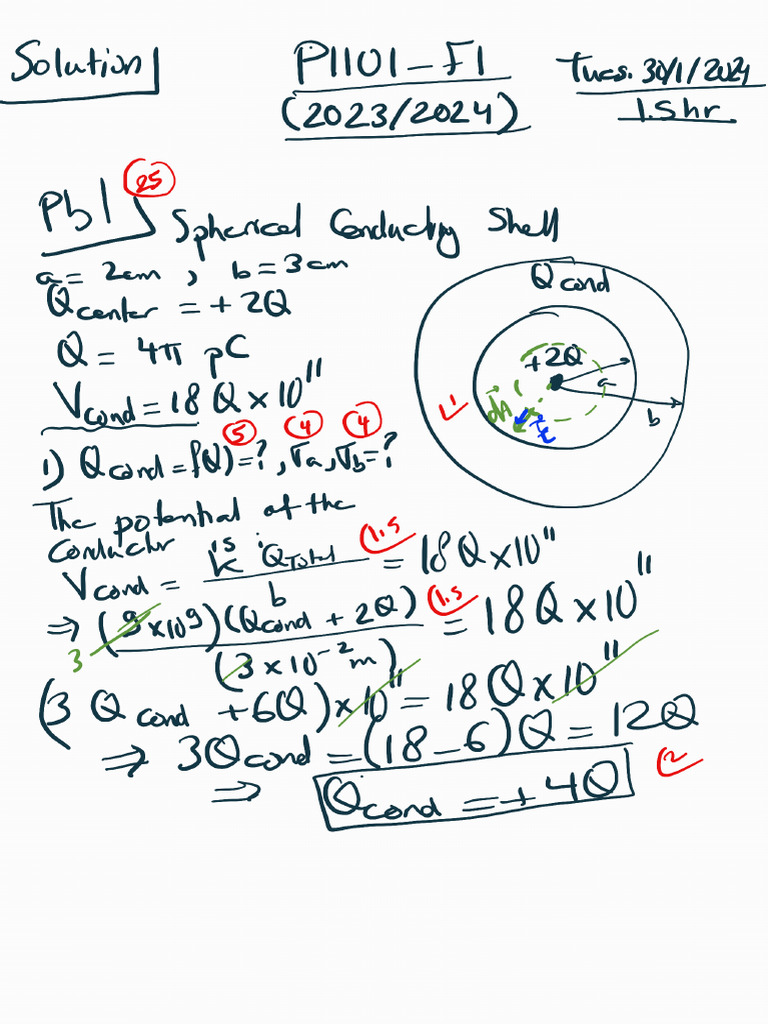 Solution
P1101-F1
Tues. 30/1/2024
(2023/2024)
1.5 hr
Pb1 25
Spherical Conducting Shell
a = 2cm , b = 3cm
Qcond
Qcenter = + 2Q
+2Q
Q = 4π pC
a
Vcond = 18 Q × 10¹¹
b
dA
1
5 4 4
1) Qcond = f(Q) = ? , σa, σb = ?
The potential of the
conductor is :
Vcond = k QTotal / b = 18Q × 10¹¹ 1.5
⇒ (9 × 10⁹)(Qcond + 2Q) / (3 × 10⁻² m) = 18Q × 10¹¹ 1.5
3
(3 Qcond + 6Q) × 10¹¹ = 18Q × 10¹¹
⇒ 3Qcond = (18 - 6)Q = 12Q
⇒ Qcond = + 4Q 2